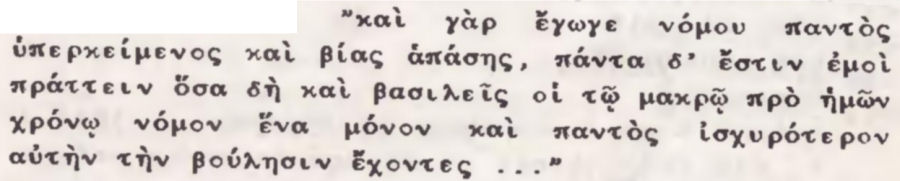 "καὶ γὰρ ἔγωγε νόμου παντὸς
ὑπερκείμενος καὶ βίας ἁπάσης, πάντα δ' ἔστιν ἐμοὶ
πράττειν ὅσα δὴ καὶ βασιλεῖς οἱ τῷ μακρῷ πρὸ ἡμῶν
χρόνῳ νόμον ἕνα μόνον καὶ παντὸς ἰσχυρότερον
αὐτὴν τὴν βούλησιν ἔχοντες ..."